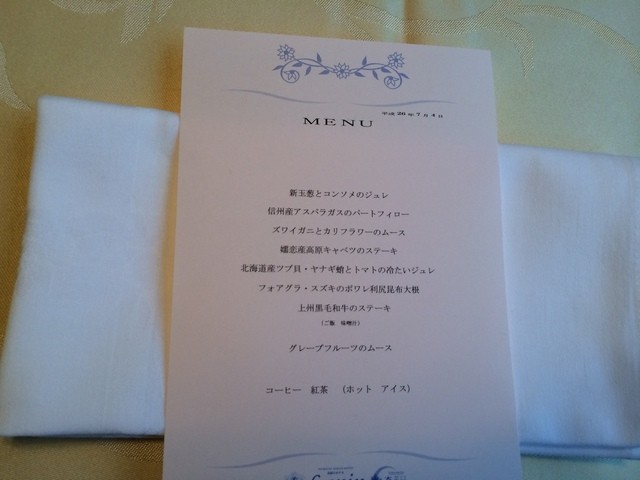 平成 20 年 7 月 4 日
MENU
新玉葱とコンソメのジュレ
信州産アスパラガスのパートフィロー
ズワイガニとカリフラワーのムース
嬬恋産高原キャベツのステーキ
北海道産ツブ貝・ヤナギ鮹とトマトの冷たいジュレ
フォアグラ・スズキのポワレ利尻昆布大根
上州黒毛和牛のステーキ
(ご飯 味噌汁)
グレープフルーツのムース
コーヒー 紅茶 (ホット アイス)